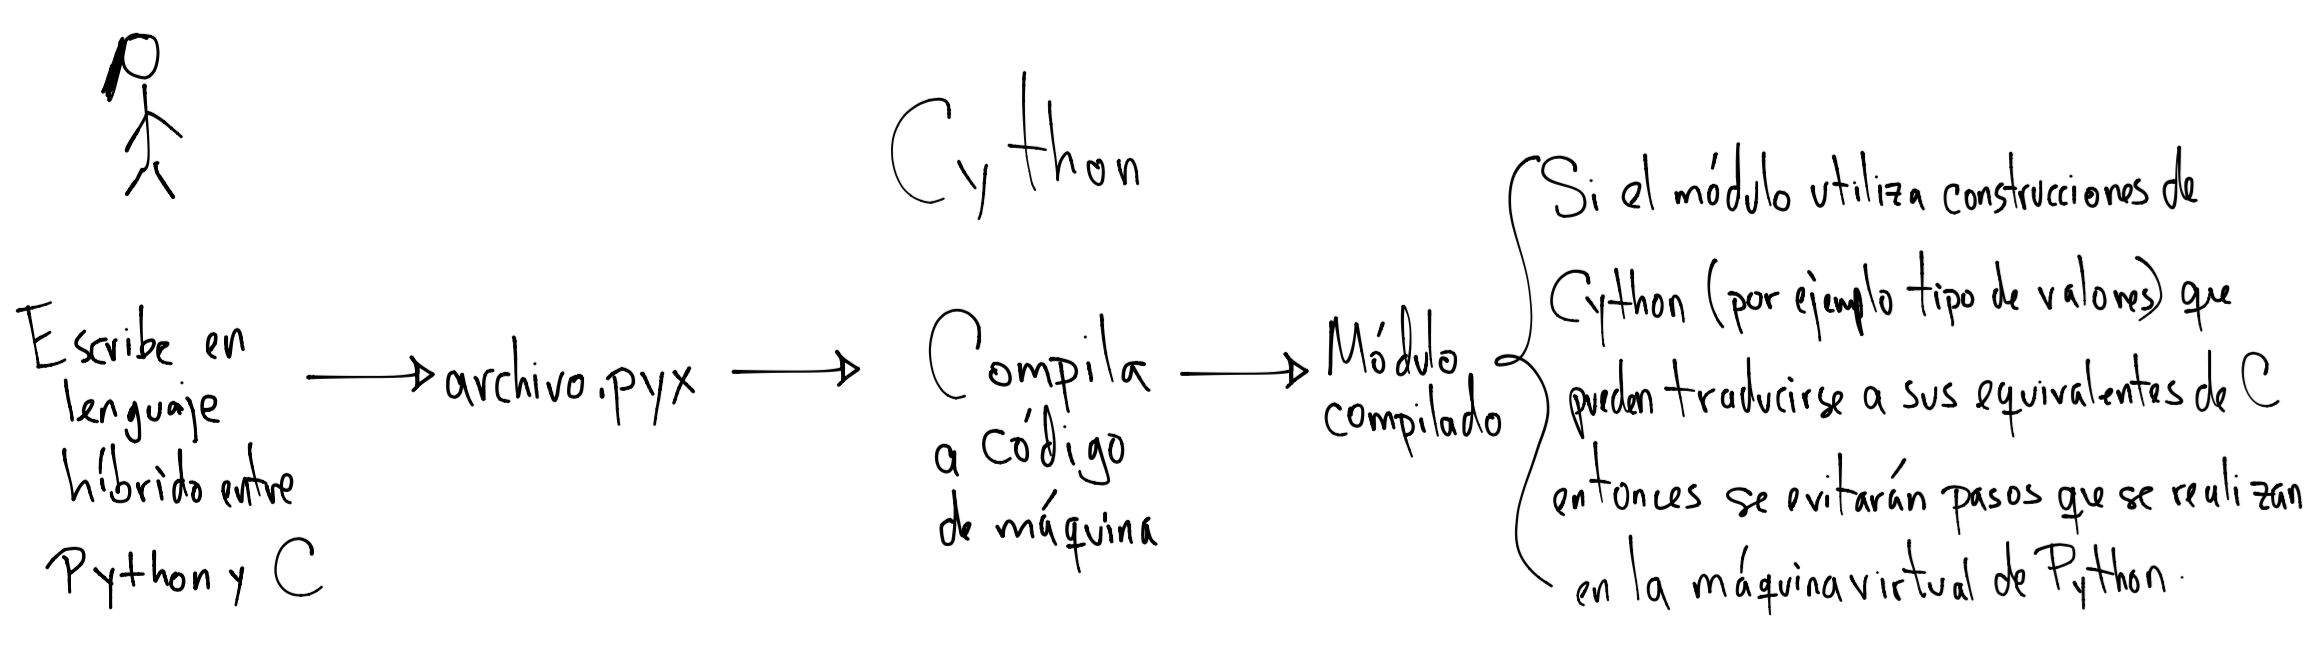 Cython
Escribe en
lenguaje
híbrido entre
Python y C
archivo.pyx
Compila
a código
de máquina
Módulo
compilado
Si el módulo utiliza construcciones de
Cython (por ejemplo tipo de valores) que
pueden traducirse a sus equivalentes de C
entonces se evitarán pasos que se realizan
en la máquina virtual de Python.